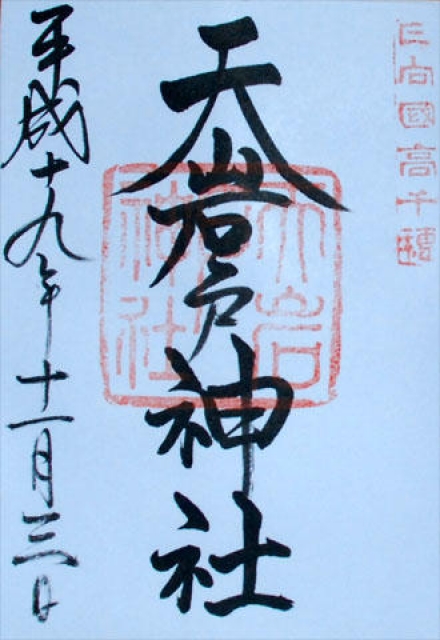 日向國高千穂
天岩戸神社
天岩戸神社
平成十九年十一月三日